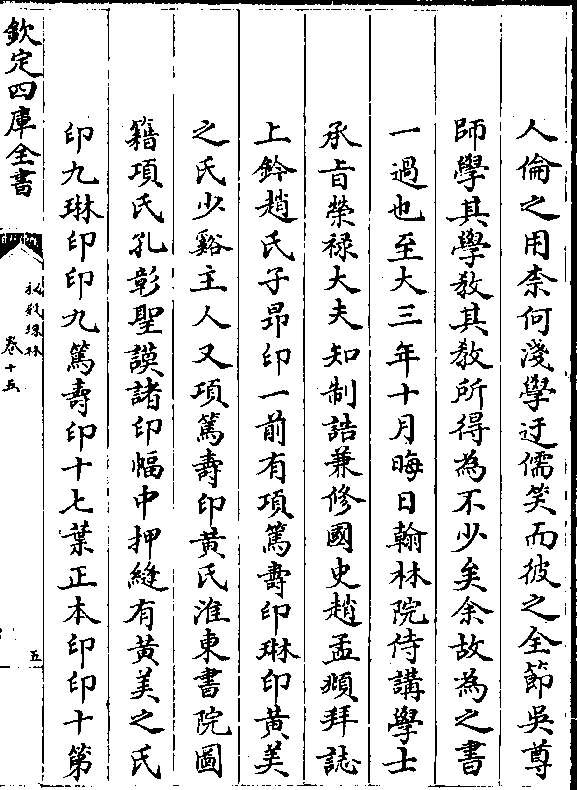 人倫之用柰何淺學迂儒笑而彼之全節吳尊
師學其學教其教所得為不少矣余故為之書
一過也至大三年十月晦日翰林院侍講學士
承㫖榮禄大夫知制誥兼修國史趙孟頫拜誌
上鈐趙氏子昻印一前有項篤壽印琳印黄美
之氏少谿主人又項篤壽印黄氏淮東書院圖
籍項氏孔彰聖謨諸印幅中押縫有黄美之氏
印九琳印印九篤壽印十七葉正本印印十第
欽定四庫全書
秘殿珠林
卷十五
五